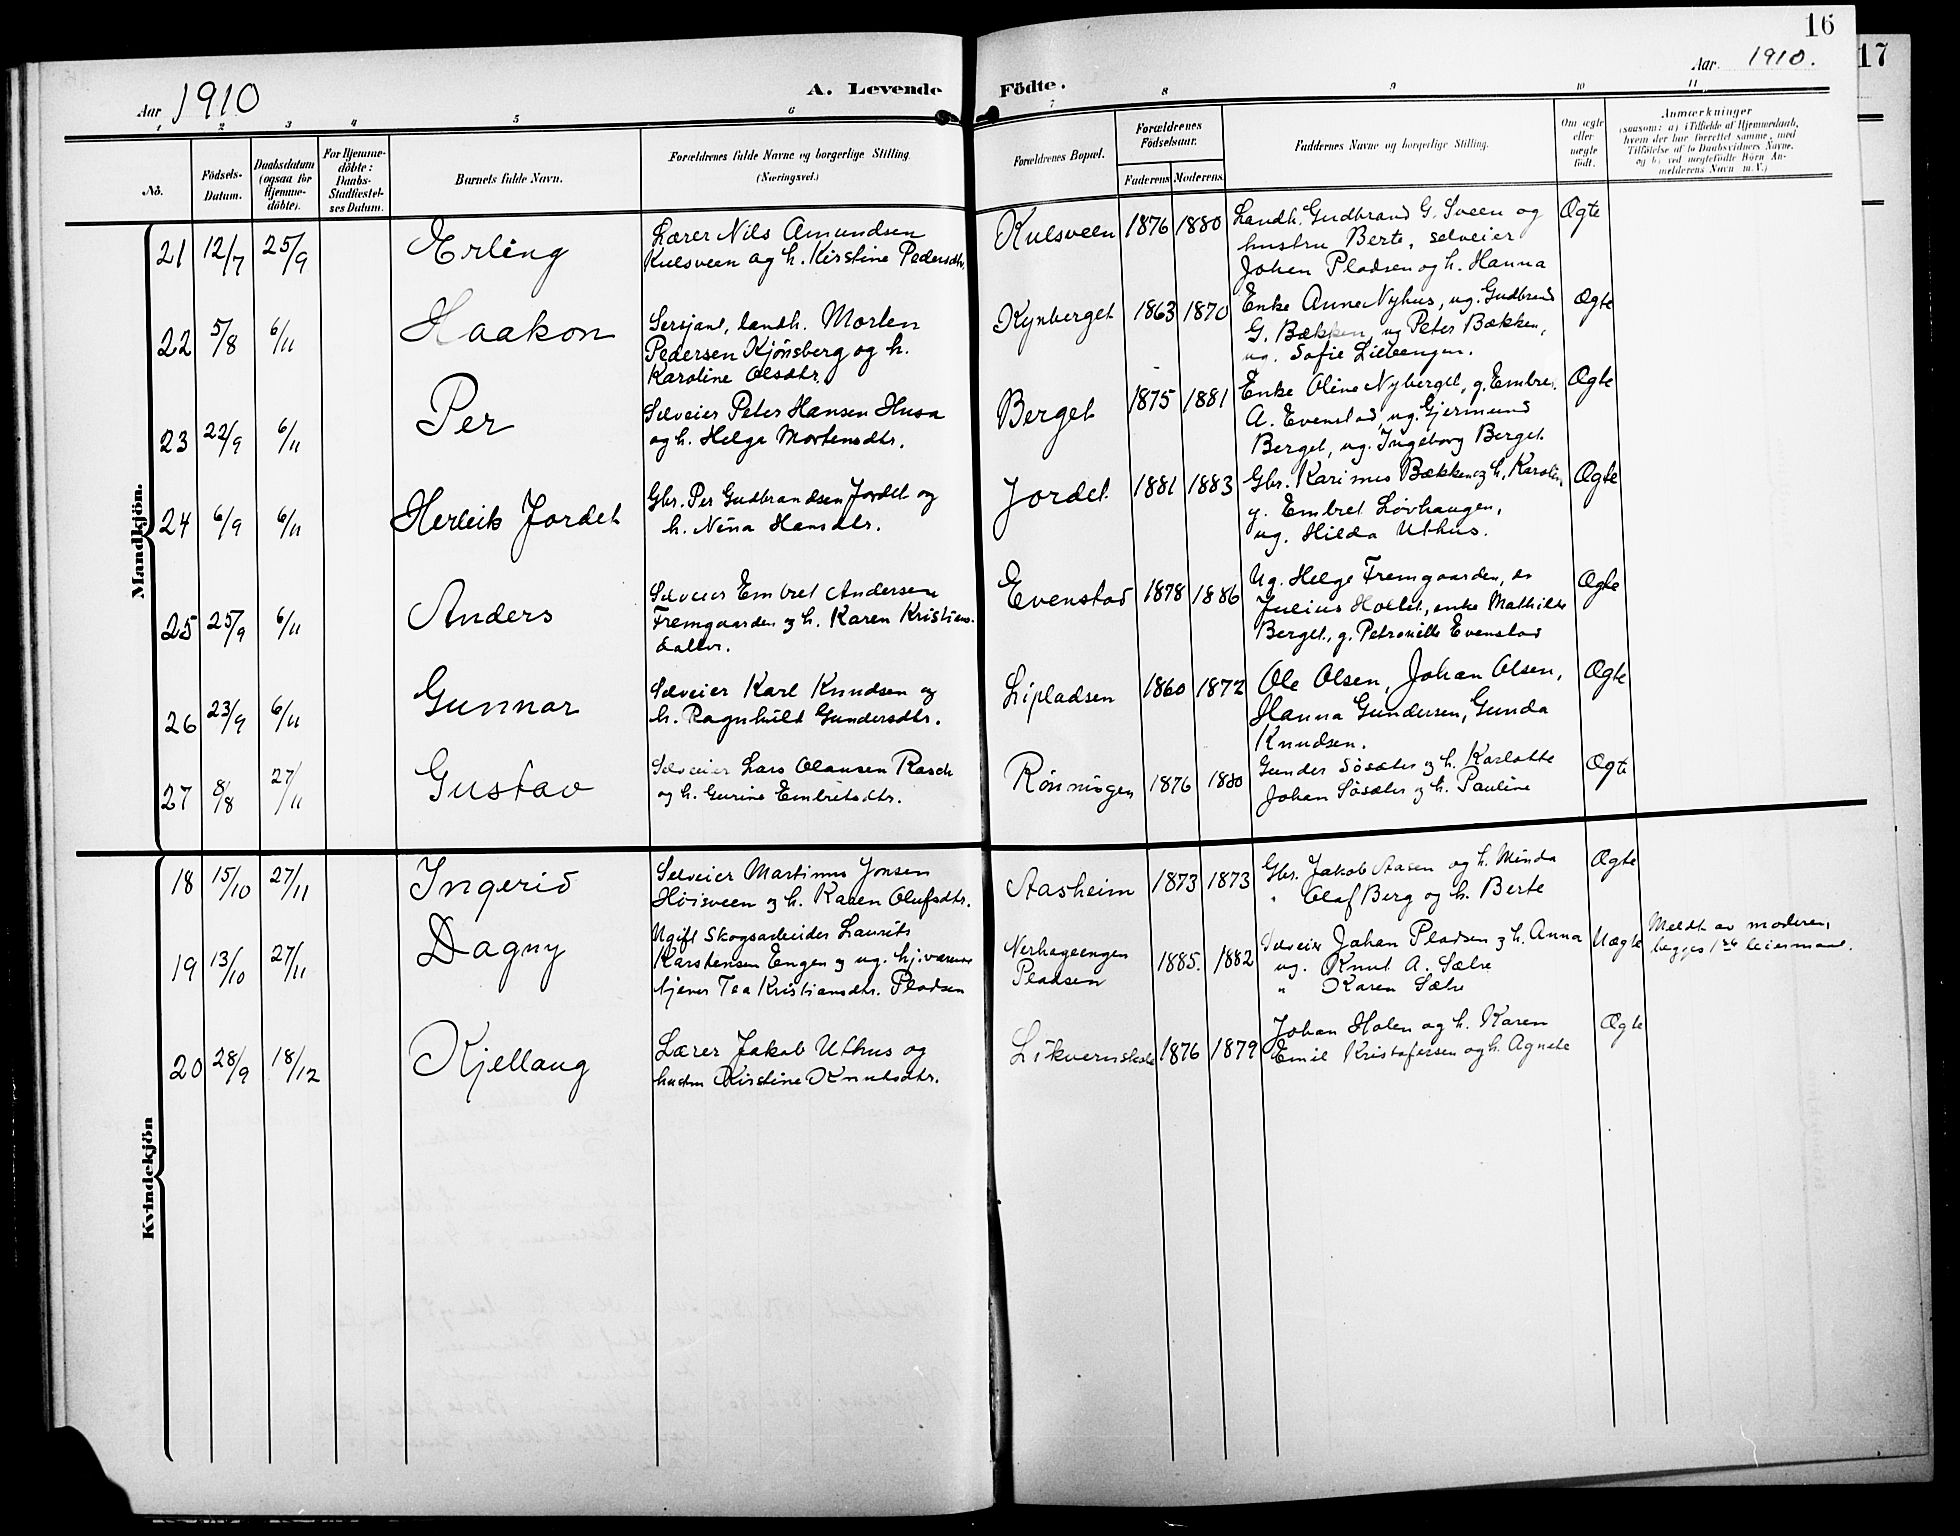 16
17
Aar 1910
A. Levende Födte.
Aar 1910.
1 2 3 4 5 6 7 8 9 10 11
No.
Födsels-Datum.
Daabsdatum (ogsaa for Hjemme-döbte).
For Hjemme-döbte: Daabs-Stadfæstel-ses Datum.
Barnets fulde Navn.
Forældrenes fulde Navne og borgerlige Stilling
(Næringsvei.)
Forældrenes Bopæl.
Forældrenes Födselsaar.
Faderens Moderens
Faddernes Navne og borgerlige Stilling.
Om ægte eller uægte födt.
Anmærkninger
(saasom: a) i Tilfælde af Hjemmedaab,
hvem der har forrettet samme, med
Tilföielse af to Daabsvidners Navne,
og b) ved uægtefödte Börn An-
melderens Navn m. V.)
Mandkjön.
21 12/7 25/9 Erling
Lærer Nils Amundsen
Kulsveen og h. Kirstine Pedersdtr.
Kulsveen 1876 1880
Landh. Gudbrand G. Sveen og
hustru Berte, selveier
Johan Pladsen og h. Hanna
Ægte
22 5/8 6/11 Haakon
Sersjant, landh. Morten
Pedersen Kjönsberg og h.
Karoline Olsdtr.
Kynberget 1863 1870
Enke Anne Nyhus, ug. Gudbrand
G. Bækken, ug Peter Bækken,
ug. Sofie Lilleengen.
Ægte
23 22/9 6/11 Per
Selveier Peter Hansen Husa
og h. Helge Mortensdtr.
Berget 1875 1881
Enke Oline Nyberget, g. Embret
A. Evenstad, ug. Gjermund
Berget, ug. Ingeborg Berget.
Ægte
24 6/9 6/11 Herleik Jordet
Gbr. Per Gudbrandsen Jordet og
h. Nina Hansdtr.
Jordet 1881 1883
Gbr. Karinus Bækken og h. Karoline,
g. Embret Lövhaugen,
ug. Hilda Uthus.
Ægte
25 25/9 6/11 Anders
Selveier Embret Andersen
Fremgaarden og h. Karen Kristians-
datter.
Evenstad 1878 1886
Ug. Helge Fremgaarden,
Julius Holtet, enke Mathilde
Berget, g. Petronille Evenstad
Ægte
26 23/9 6/11 Gunnar
Selveier Karl Knudsen og
h. Ragnhild Gundersdtr.
Lipladsen 1860 1872
Ole Olsen, Johan Olsen,
Hanna Gundersen, Gunda
Knudsen.
Ægte
27 8/8 27/11 Gustav
Selveier Lars Olausen Rasch
og h. Gurine Embretsdtr.
Rönningen 1876 1880
Gunder Sösæter og h. Karlotte
Johan Sösæter og h. Pauline
Ægte
Kvindekjön
18 15/10 27/11 Ingerid
Selveier Martinus Jonsen
Höisveen og h. Karen Olufsdtr.
Aasheim 1873 1873
Gbr. Jakob Aasen og h. Minda
" Olaf Berg og h. Berte
Ægte
19 13/10 27/11 Dagny
Ugift Skogsarbeider Laurits
Karstensen Engen og ug. hj.værende
tjener Tea Kristiansdtr. Pladsen
Nerhageengen
Pladsen
1885. 1882
Selveier Johan Pladsen og h. Anna
ug. Knut A. Sætre
" Karen Sætre
Uægte
Meldt av moderen,
begges 1ste leiermaal.
20 28/9 18/12 Kjellaug
Lærer Jakob Uthus og
hustru Kirstine Knutsdtr.
Likvernskole 1876 1879
Johan Holen og h. Karen
Emil Kristofersen og h. Agnete
Ægte